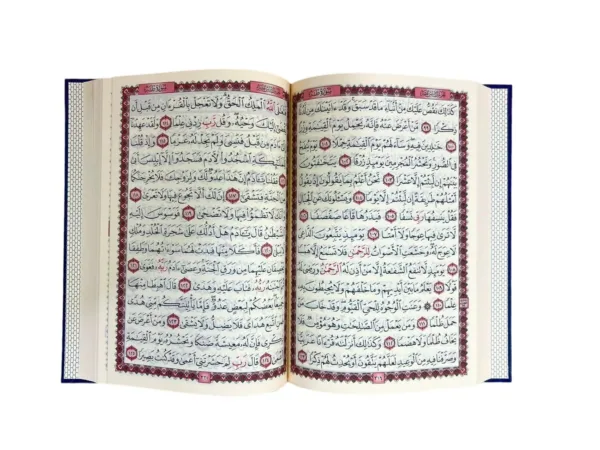 كَذَٰلِكَ نَقُصُّ عَلَيْكَ مِنْ أَنۢبَآءِ مَا قَدْ سَبَقَ وَقَدْ ءَاتَيْنَٰكَ مِن لَّدُنَّا
ذِكْرًا ٩٩ مَّنْ أَعْرَضَ عَنْهُ فَإِنَّهُۥ يَحْمِلُ يَوْمَ ٱلْقِيَٰمَةِ وِزْرًا
١٠٠ خَٰلِدِينَ فِيهِ وَسَآءَ لَهُمْ يَوْمَ ٱلْقِيَٰمَةِ حِمْلًا ١٠١ يَوْمَ يُنفَخُ
فِى ٱلصُّورِ وَنَحْشُرُ ٱلْمُجْرِمِينَ يَوْمَئِذٍ زُرْقًا ١٠٢ يَتَخَٰفَتُونَ
بَيْنَهُمْ إِن لَّبِثْتُمْ إِلَّا عَشْرًا ١٠٣ نَّحْنُ أَعْلَمُ بِمَا يَقُولُونَ إِذْ يَقُولُ
أَمْثَلُهُمْ طَرِيقَةً إِن لَّبِثْتُمْ إِلَّا يَوْمًا ١٠٤ وَيَسْـَٔلُونَكَ عَنِ ٱلْجِبَالِ
فَقُلْ يَنسِفُهَا رَبِّى نَسْفًا ١٠٥ فَيَذَرُهَا قَاعًا صَفْصَفًا ١٠٦
لَّا تَرَىٰ فِيهَا عِوَجًا وَلَآ أَمْتًا ١٠٧ يَوْمَئِذٍ يَتَّبِعُونَ ٱلدَّاعِىَ
لَا عِوَجَ لَهُۥ وَخَشَعَتِ ٱلْأَصْوَاتُ لِلرَّحْمَٰنِ فَلَا تَسْمَعُ إِلَّا هَمْسًا
١٠٨ يَوْمَئِذٍ لَّا تَنفَعُ ٱلشَّفَٰعَةُ إِلَّا مَنْ أَذِنَ لَهُ ٱلرَّحْمَٰنُ وَرَضِىَ لَهُۥ
قَوْلًا ١٠٩ يَعْلَمُ مَا بَيْنَ أَيْدِيهِمْ وَمَا خَلْفَهُمْ وَلَا يُحِيطُونَ بِهِۦ
عِلْمًا ١١٠ ۞ وَعَنَتِ ٱلْوُجُوهُ لِلْحَىِّ ٱلْقَيُّومِ وَقَدْ خَابَ مَنْ
حَمَلَ ظُلْمًا ١١١ وَمَن يَعْمَلْ مِنَ ٱلصَّٰلِحَٰتِ وَهُوَ مُؤْمِنٌ فَلَا
يَخَافُ ظُلْمًا وَلَا هَضْمًا ١١٢ وَكَذَٰلِكَ أَنزَلْنَٰهُ قُرْءَانًا عَرَبِيًّا
وَصَرَّفْنَا فِيهِ مِنَ ٱلْوَعِيدِ لَعَلَّهُمْ يَتَّقُونَ أَوْ يُحْدِثُ لَهُمْ ذِكْرًا ١١٣
فَتَعَٰلَى ٱللَّهُ ٱلْمَلِكُ ٱلْحَقُّ وَلَا تَعْجَلْ بِٱلْقُرْءَانِ مِن قَبْلِ أَن
يُقْضَىٰٓ إِلَيْكَ وَحْيُهُۥ وَقُل رَّبِّ زِدْنِى عِلْمًا ١١٤ وَلَقَدْ عَهِدْنَآ
إِلَىٰٓ ءَادَمَ مِن قَبْلُ فَنَسِىَ وَلَمْ نَجِدْ لَهُۥ عَزْمًا ١١٥ وَإِذْ قُلْنَا
لِلْمَلَٰٓئِكَةِ ٱسْجُدُوا۟ لِءَادَمَ فَسَجَدُوٓا۟ إِلَّآ إِبْلِيسَ أَبَىٰ
١١٦ فَقُلْنَا يَٰٓـَٔادَمُ إِنَّ هَٰذَا عَدُوٌّ لَّكَ وَلِزَوْجِكَ فَلَا يُخْرِجَنَّكُمَا
مِنَ ٱلْجَنَّةِ فَتَشْقَىٰٓ ١١٧ إِنَّ لَكَ أَلَّا تَجُوعَ فِيهَا وَلَا تَعْرَىٰ ١١٨
وَأَنَّكَ لَا تَظْمَؤُا۟ فِيهَا وَلَا تَضْحَىٰ ١١٩ فَوَسْوَسَ إِلَيْهِ
ٱلشَّيْطَٰنُ قَالَ يَٰٓـَٔادَمُ هَلْ أَدُلُّكَ عَلَىٰ شَجَرَةِ ٱلْخُلْدِ وَمُلْكٍ
لَّا يَبْلَىٰ ١٢٠ فَأَكَلَا مِنْهَا فَبَدَتْ لَهُمَا سَوْءَٰتُهُمَا وَطَفِقَا
يَخْصِفَانِ عَلَيْهِمَا مِن وَرَقِ ٱلْجَنَّةِ وَعَصَىٰٓ ءَادَمُ رَبَّهُۥ فَغَوَىٰ ١٢١
ثُمَّ ٱجْتَبَٰهُ رَبُّهُۥ فَتَابَ عَلَيْهِ وَهَدَىٰ ١٢٢ قَالَ ٱهْبِطَا مِنْهَا
جَمِيعًۢا بَعْضُكُمْ لِبَعْضٍ عَدُوٌّ فَإِمَّا يَأْتِيَنَّكُم مِّنِّى هُدًى
فَمَنِ ٱتَّبَعَ هُدَاىَ فَلَا يَضِلُّ وَلَا يَشْقَىٰ ١٢٣ وَمَنْ أَعْرَضَ عَن
ذِكْرِى فَإِنَّ لَهُۥ مَعِيشَةً ضَنكًا وَنَحْشُرُهُۥ يَوْمَ ٱلْقِيَٰمَةِ
أَعْمَىٰ ١٢٤ قَالَ رَبِّ لِمَ حَشَرْتَنِىٓ أَعْمَىٰ وَقَدْ كُنتُ بَصِيرًا ١٢٥